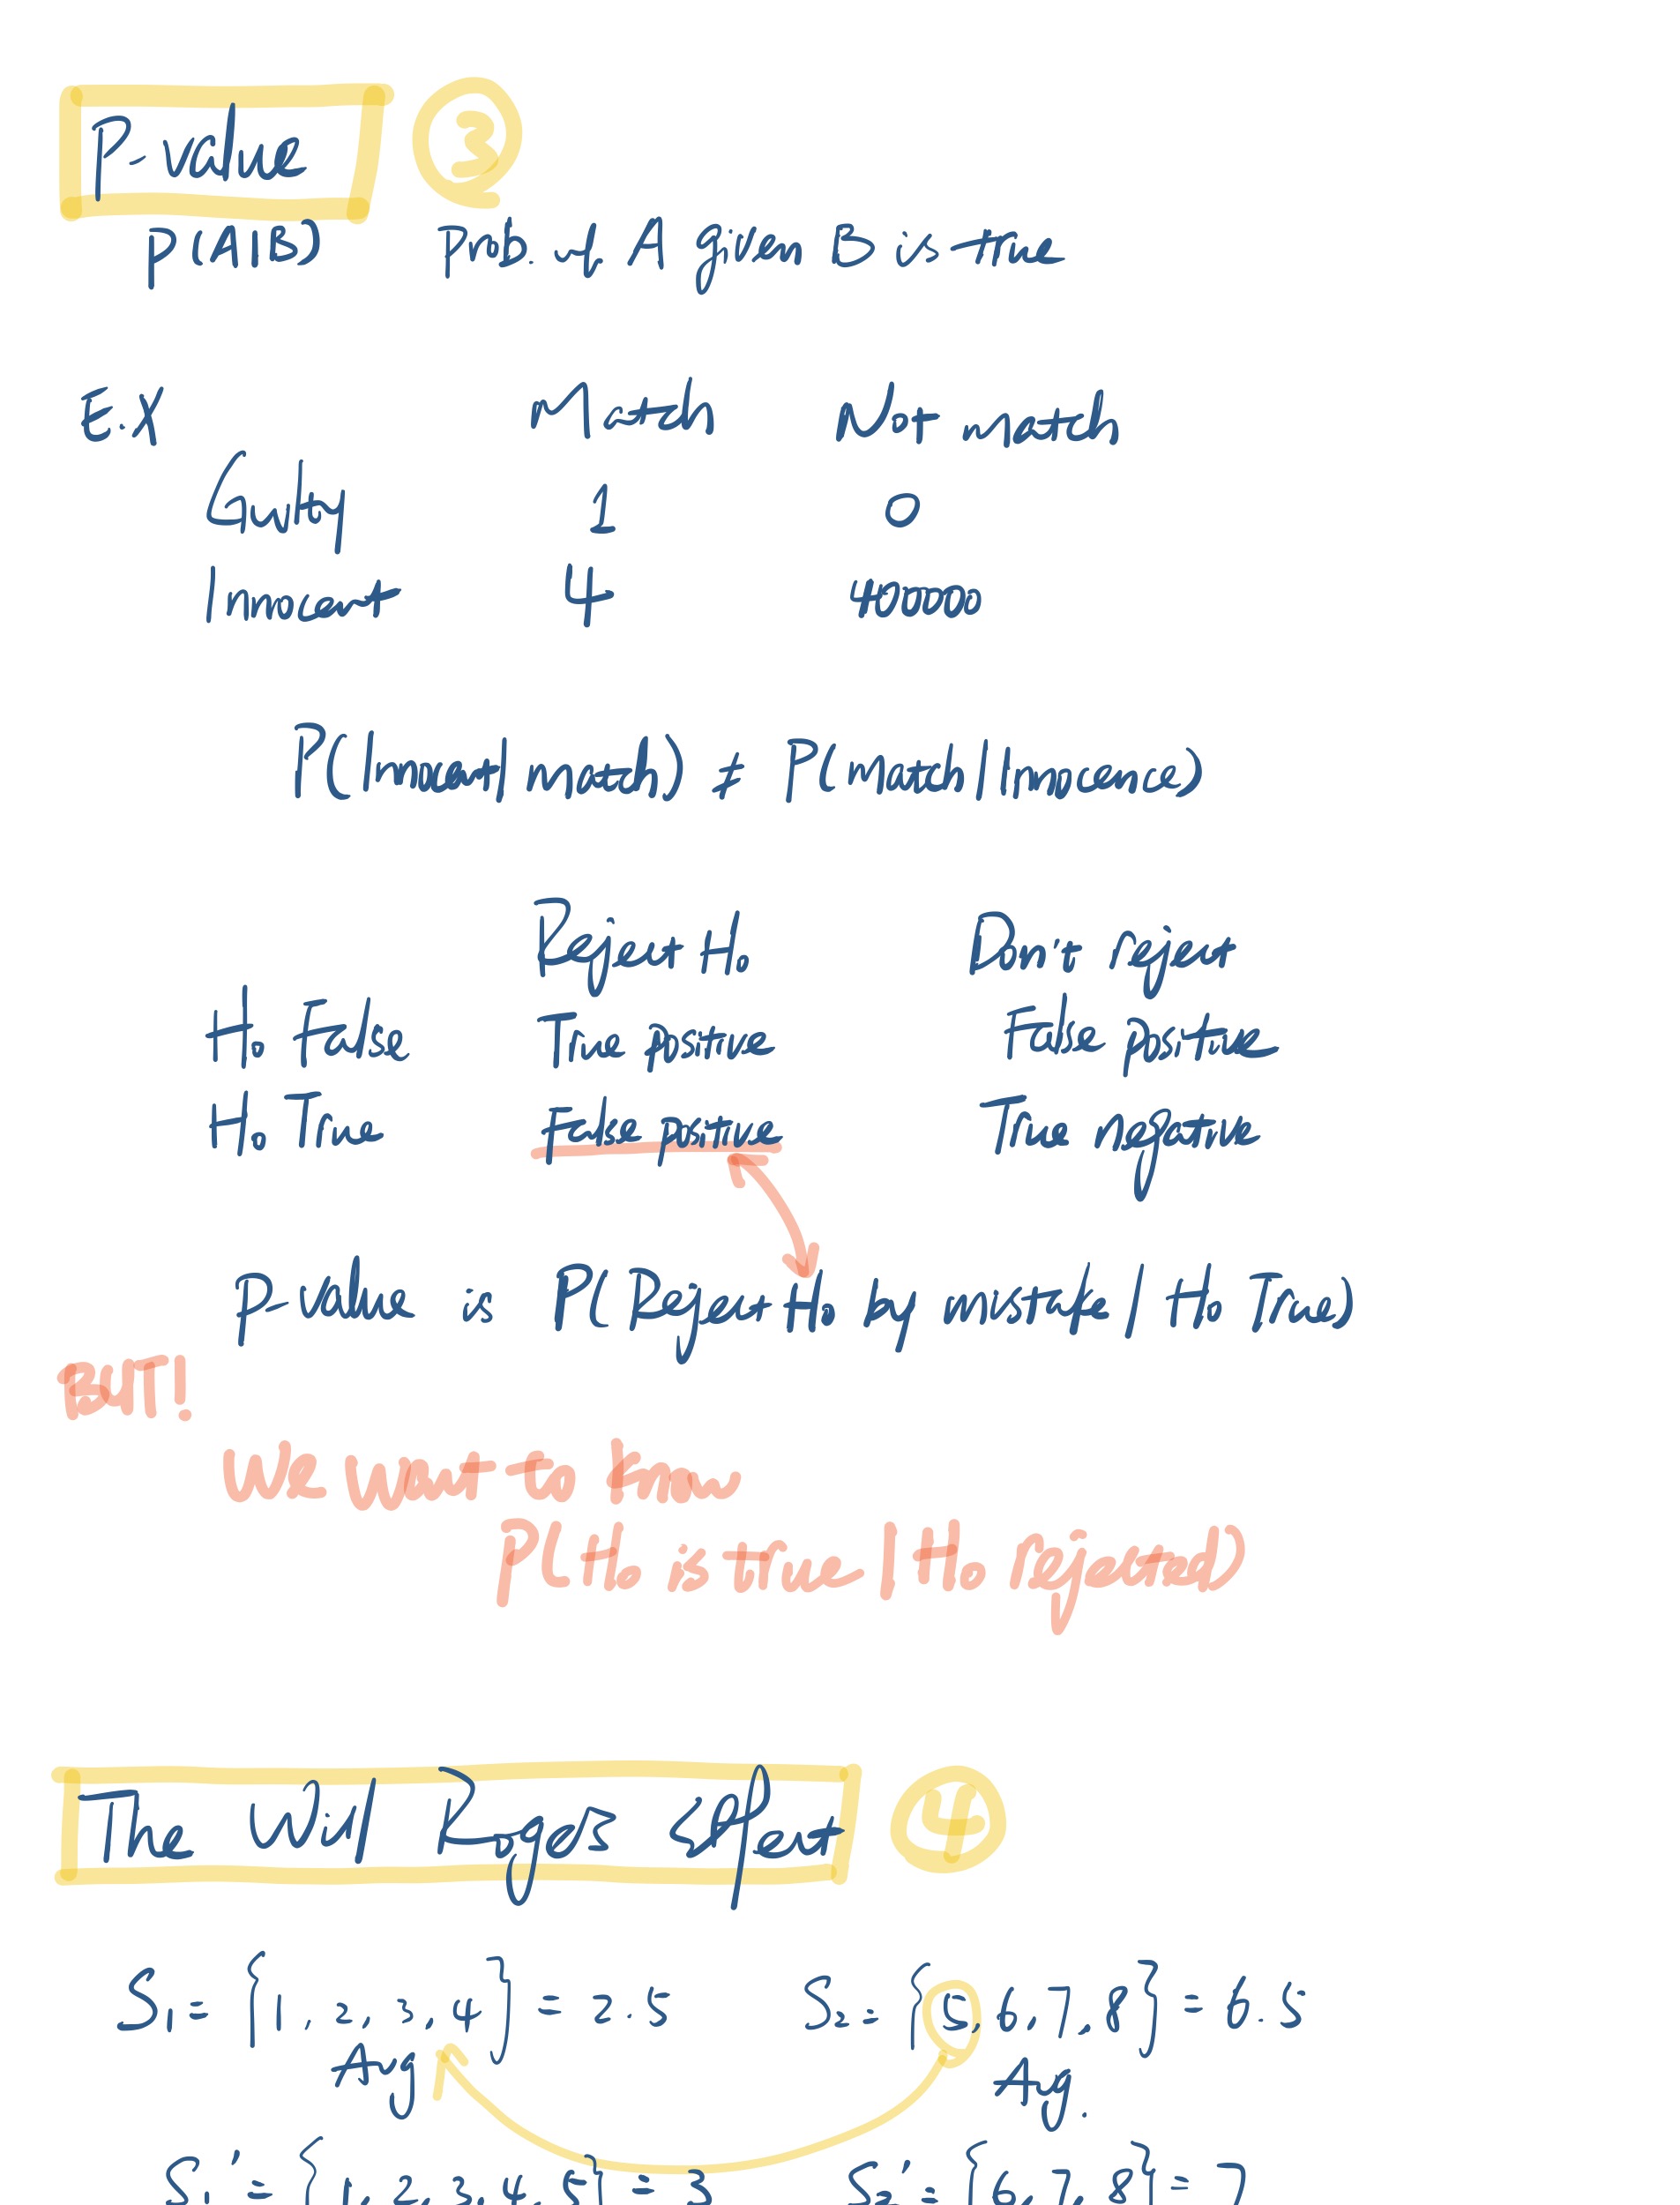 P-value ③
P(A|B) Prob. of A given B is true
E.X Match Not match
Guilty 1 0
Innocent 4 400000
P(Innocent | match) ≠ P(Match | Innocence)
Reject H₀ Don't reject
H₀ False True positive False positive
H₀ True False positive True negative
P-value is P( Reject H₀ by mistake / H₀ True)
BUT!
We want to know
P( H₀ is true | H₀ rejected)
The Will Rogers Effect ④
S₁ = {1, 2, 3, 4} = 2.5 S₂ = {5, 6, 7, 8} = 6.5
Avg Avg.
S₁' = {1, 2, 3, 4, 5} = 3 S₂' = {6, 7, 8} = 7